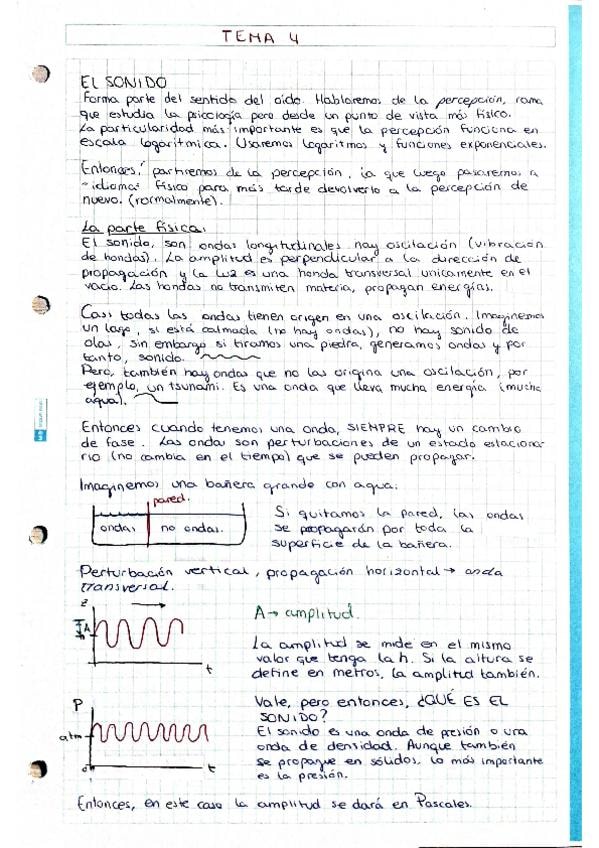 TEMA 4
EL SONIDO
Forma parte del sentido del oído. Hablaremos de la percepción, rama
que estudia la psicología pero desde un punto de vista más físico.
La particularidad más importante es que la percepción funciona en
escala logarítmica. Usaremos logaritmos y funciones exponenciales.
Entonces, partiremos de la percepción, la que luego pasaremos a
"idioma" físico para más tarde devolverlo a la percepción de
nuevo. (normalmente).
La parte física:
El sonido, son ondas longitudinales hay oscilación (vibración
de hondas). La amplitud es perpendicular a la dirección de
propagación y la luz es una honda transversal unicamente en el
vacío. Las hondas no transmiten materia, propagan energías.
Casi todas las ondas tienen origen en una oscilación. Imaginemos
un lago, si está calmada (no hay ondas), no hay sonido de
olas, sin embargo si tiramos una piedra, generamos ondas y por
tanto, sonido.
Pero, también hay ondas que no las origina una oscilación, por
ejemplo, un tsunami. Es una onda que lleva mucha energía (mucha
agua).
Entonces cuando tenemos una onda, SIEMPRE hay un cambio
de fase. Las ondas son perturbaciones de un estado estaciona-
rio (no cambia en el tiempo) que se pueden propagar.
Imaginemos una bañera grande con agua:
pared.
ondas no ondas.
Si quitamos la pared, las ondas
se propagarán por toda la
superficie de la bañera.
Perturbación vertical, propagación horizontal → onda
transversal.
z
A
t
A → amplitud.
La amplitud se mide en el mismo
valor que tenga la h. Si la altura se
define en metros, la amplitud también.
P
atm
0
t
Vale, pero entonces, ¿QUÉ ES EL
SONIDO?
El sonido es una onda de presión o una
onda de densidad. Aunque también
se propague en sólidos, lo más importante
es la presión.
Entonces, en este caso la amplitud se dará en Pascales.